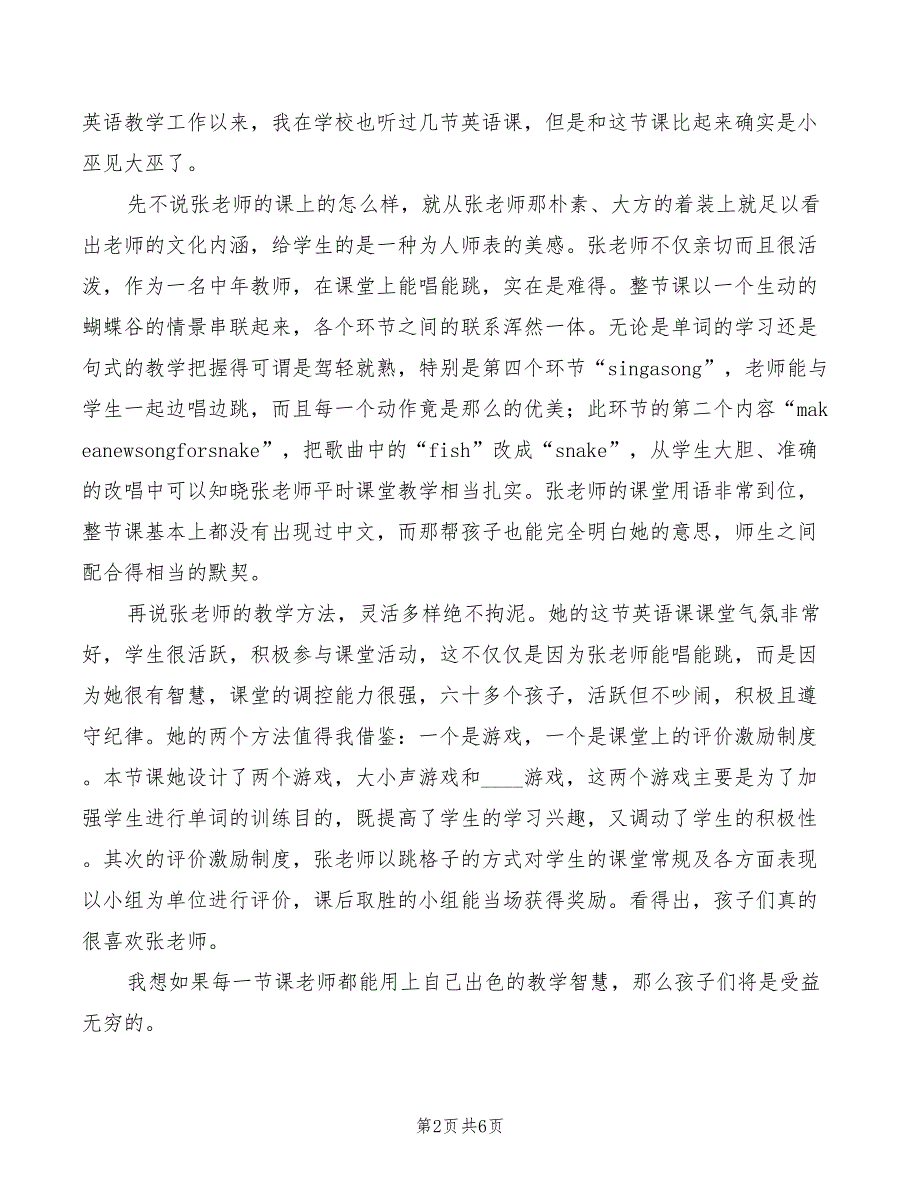 英语教学工作以来，我在学校也听过几节英语课，但是和这节课比起来确实是小
巫见大巫了。
先不说张老师的课上的怎么样，就从张老师那朴素、大方的着装上就足以看
出老师的文化内涵，给学生的是一种为人师表的美感。张老师不仅亲切而且很活
泼，作为一名中年教师，在课堂上能唱能跳，实在是难得。整节课以一个生动的
蝴蝶谷的情景串联起来，各个环节之间的联系浑然一体。无论是单词的学习还是
句式的教学把握得可谓是驾轻就熟，特别是第四个环节“singasong”，老师能与
学生一起边唱边跳，而且每一个动作竟是那么的优美；此环节的第二个内容“mak
eanewsongforsnake”，把歌曲中的“fish”改成“snake”，从学生大胆、准确
的改唱中可以知晓张老师平时课堂教学相当扎实。张老师的课堂用语非常到位，
整节课基本上都没有出现过中文，而那帮孩子也能完全明白她的意思，师生之间
配合得相当的默契。
再说张老师的教学方法，灵活多样绝不拘泥。她的这节英语课课堂气氛非常
好，学生很活跃，积极参与课堂活动，这不仅仅是因为张老师能唱能跳，而是因
为她很有智慧，课堂的调控能力很强，六十多个孩子，活跃但不吵闹，积极且遵
守纪律。她的两个方法值得我借鉴：一个是游戏，一个是课堂上的评价激励制度
。本节课她设计了两个游戏，大小声游戏和____游戏，这两个游戏主要是为了加
强学生进行单词的训练目的，既提高了学生的学习兴趣，又调动了学生的积极性
。其次的评价激励制度，张老师以跳格子的方式对学生的课堂常规及各方面表现
以小组为单位进行评价，课后取胜的小组能当场获得奖励。看得出，孩子们真的
很喜欢张老师。
我想如果每一节课老师都能用上自己出色的教学智慧，那么孩子们将是受益
无穷的。
第2页 共6页